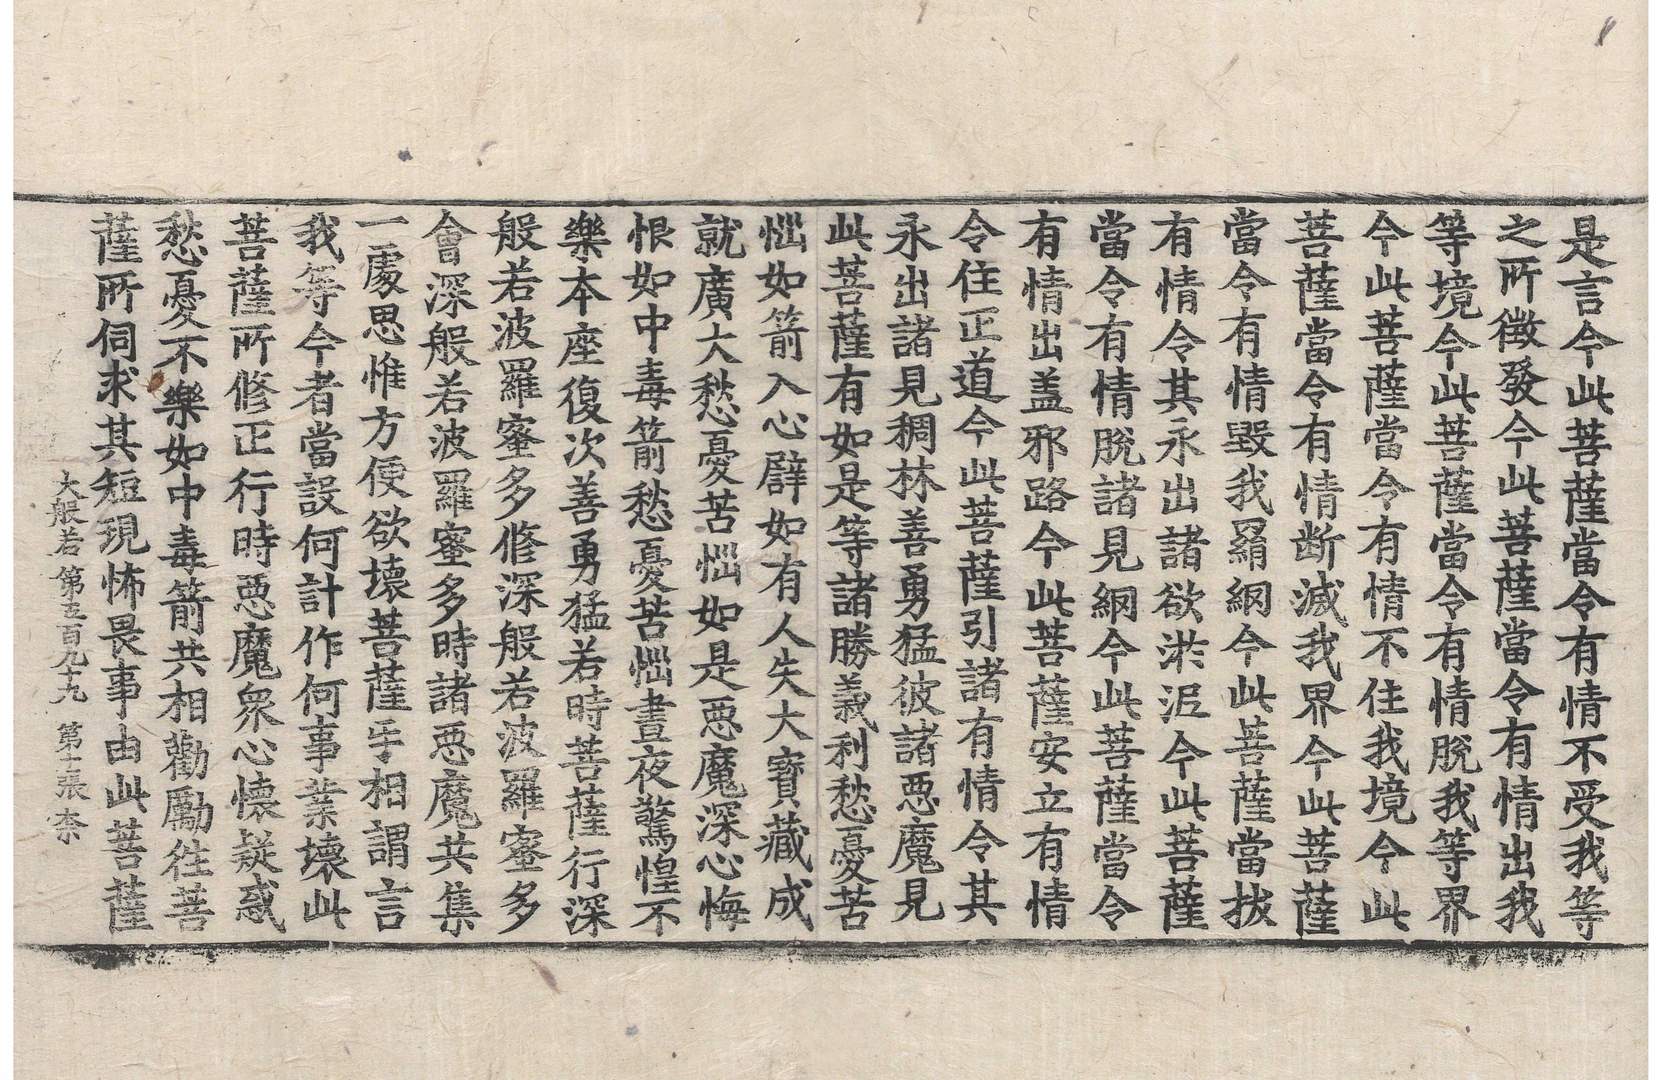 是言今此菩薩當令有情不受我等
之所徵發今此菩薩當令有情出我
等境今此菩薩當令有情脫我等界
今此菩薩當令有情不住我境今此
菩薩當令有情断滅我界今此菩薩
當令有情毀我羂網今此菩薩當拔
有情令其永出諸欲淤泥今此菩薩
當令有情脫諸見網今此菩薩當令
有情出盖邪路今此菩薩安立有情
令住正道今此菩薩引諸有情令其
永出諸見稠林善勇猛彼諸惡魔見
此菩薩有如是等諸勝義利愁憂苦
惱如箭入心譬如有人失大寶藏成
就廣大愁憂苦惱如是惡魔深心悔
恨如中毒箭愁憂苦惱晝夜驚惶不
樂本座復次善勇猛若時菩薩行深
般若波羅蜜多修深般若波羅蜜多
會深般若波羅蜜多時諸惡魔共集
一處思惟方便欲壞菩薩㸦相謂言
我等今者當設何計作何事業壞此
菩薩所修正行時惡魔衆心懷疑惑
愁憂不樂如中毒箭共相勸勵往菩
薩所伺求其短現怖畏事由此菩薩
大般若第五百九十九 第十一張 柰